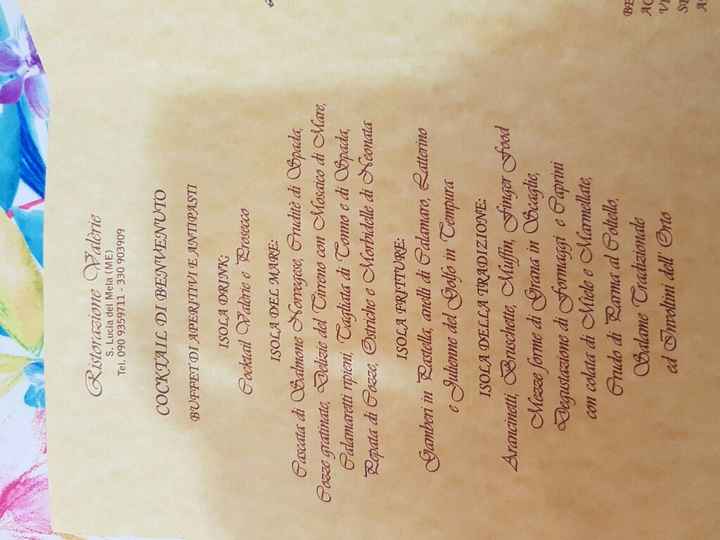 Ristorazione Valèrio
S. Lucia del Mela (ME)
Tel. 090 9359711 - 330 903909
COCKTAIL DI BENVENUTO
BUFFET DI APERITIVI E ANTIPASTI
ISOLA DRINK:
Cocktail Valèrio e Prosecco
ISOLA DEL MARE:
Cascata di Salmone Norvegese, Cruditè di Spada,
Cozze gratinate, Delizie del Tirreno con Mosaico di Mare,
Calamaretti ripieni, Tagliata di Tonno e di Spada,
Pepata di Cozze, Ostriche e Morbidelle di Neonata
ISOLA FRITTURE:
Gamberi in Pastella, anelli di Calamaro, Latterino
e Julienne del Golfo in Tempura
ISOLA DELLA TRADIZIONE:
Arancinetti, Bruschette, Muffin, Finger Food
Mezze forme di Grana in Scaglie,
Degustazione di Formaggi e Caprini
con colata di Miele e Marmellate,
Crudo di Parma al Coltello,
Salame Tradizionale
ed Involtini dell' Orto